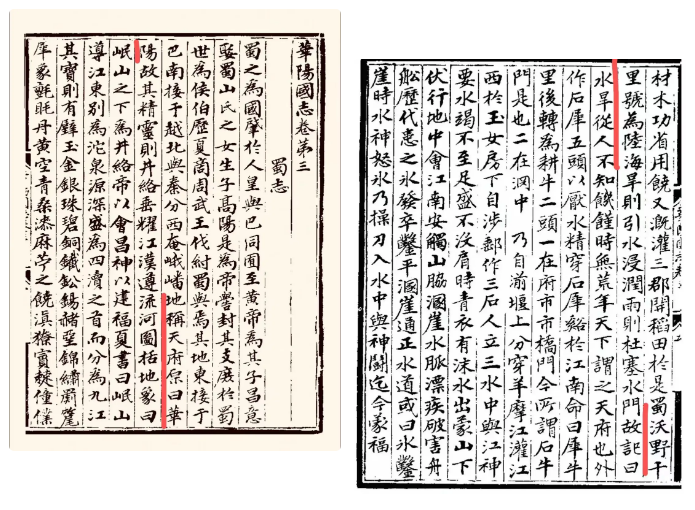 華陽國志卷第三
蜀志
蜀之為國肇於人皇與巴同囿至黃帝為其子昌意
娶蜀山氏之女生子高陽是為帝嚳封其支庶於蜀
世為侯伯歷夏商周武王伐紂蜀與焉其地東接于
巴南接于越北與秦分西奄峨嶓地稱天府原曰華
陽故其精靈則井絡垂耀江漢遵流河圖括地象曰
岷山之下為井絡帝以會昌神以建福夏書曰岷山
導江東別為沱泉源深盛為四瀆之首而分為九江
其寶則有璧玉金銀珠碧銅鐵鉛錫赭堊錦繡罽氂
犀象氈毦丹黃空青桑漆麻苧之饒滇獠賨僰僮僕
材木功省用饒又溉灌三郡開稻田於是蜀沃野千
里號為陸海旱則引水浸潤雨則杜塞水門故記曰
水旱從人不知饑饉時無荒年天下謂之天府也外
作石犀五頭以厭水精穿石犀谿於江南命曰犀牛
里後轉為耕牛二頭一在府市市橋門今所謂石牛
門是也二在淵中 乃自湔堰上分穿羊摩江灌江
西於玉女房下自涉郵作三石人立三水中與江神
要水竭不至足盛不沒肩時青衣有沫水出蒙山下
伏行地中會江南安觸山脇溷崖水脉漂疾破害舟
舩歷代患之氷發卒鑿平溷崖通正水道或曰氷鑿
崖時水神怒氷乃操刀入水中與神鬪迄今蒙福